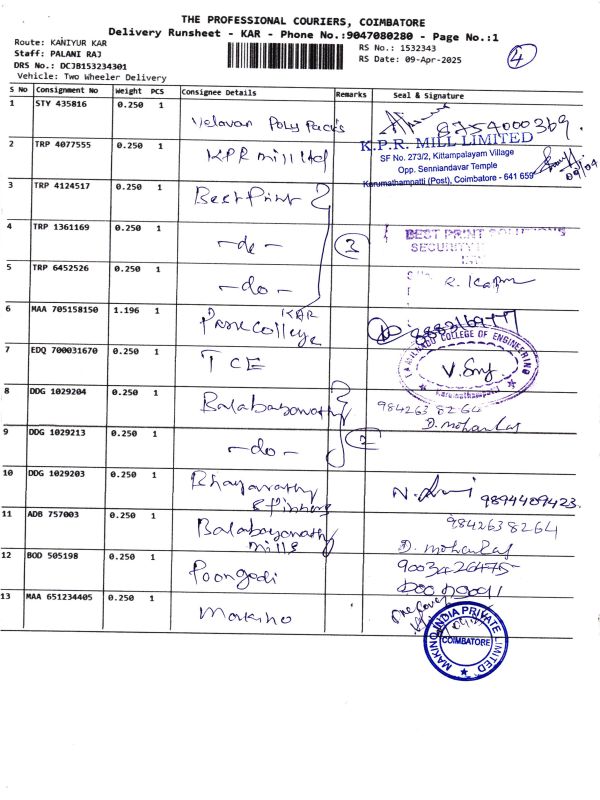 THE PROFESSIONAL COURIERS, COIMBATORE
Delivery Runsheet - KAR - Phone No.:9047080280 - Page No.:1
Route: KANIYUR KAR
Staff: PALANI RAJ
DRS No.: DCJB153234301
Vehicle: Two Wheeler Delivery
RS No.: 1532343
RS Date: 09-Apr-2025
4
S No Consignment No Weight PCS Consignee Details Remarks Seal & Signature
1 STY 435816 0.250 1 Velavan Poly Packs 8754000369.
2 TRP 4077555 0.250 1 KPR mill ltd
K.P.R. MILL LIMITED
SF No. 273/2, Kittampalayam Village
Opp. Senniandavar Temple
Karumathampatti (Post), Coimbatore - 641 659
09/04
3 TRP 4124517 0.250 1 Best Print
4 TRP 1361169 0.250 1 -do- 3
BEST PRINT
SECURITY
5 TRP 6452526 0.250 1 -do-
6 MAA 705158150 1.196 1 Park College KAR
7 EDQ 700031670 0.250 1 TCE
TAMILNADU COLLEGE OF ENGINEERING
Karumathampatti
8 DDG 1029204 0.250 1 9842638264
D. mohanlal
9 DDG 1029213 0.250 1 -do- 2
10 DDG 1029203 0.250 1 9894409423.
11 ADB 757003 0.250 1 mills 9842638264
D. mohanlal
12 BOD 505198 0.250 1 Poongodi
13 MAA 651234405 0.250 1 Makino
MAKINO INDIA PRIVATE LIMITED
COIMBATORE